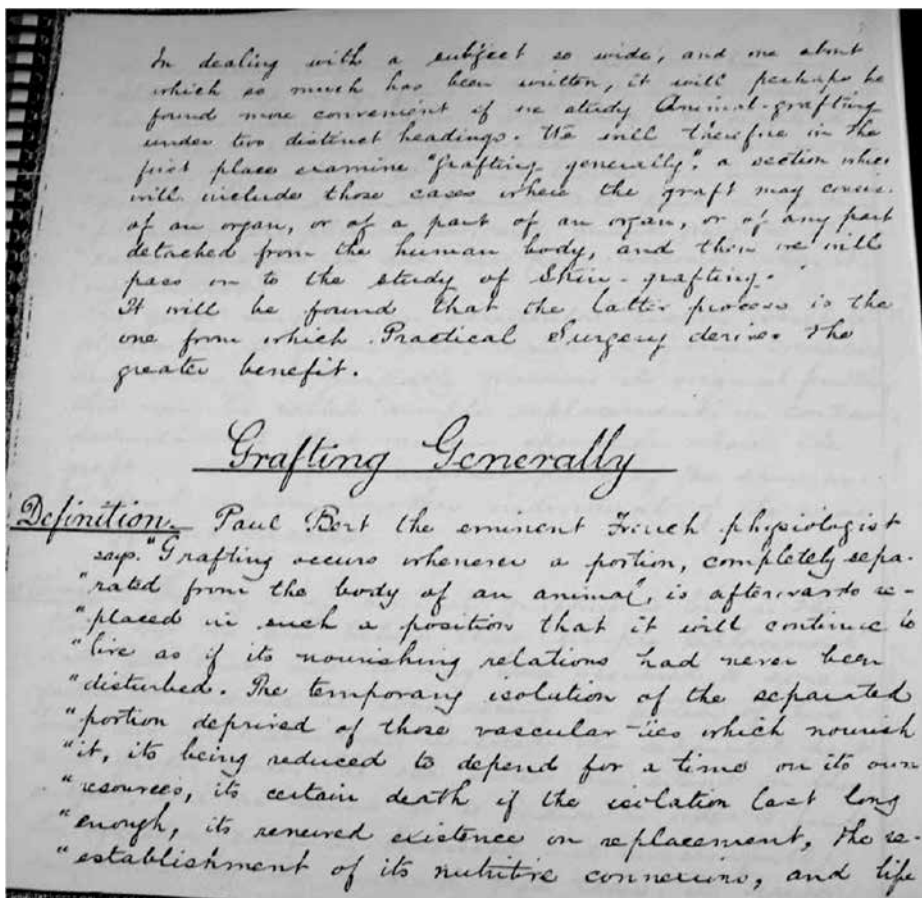 In dealing with a subject so wide, and one about
which so much has been written, it will perhaps be
found more convenient if we study Animal-grafting
under two distinct headings. We will therefore in the
first place examine "Grafting generally", a section which
will include those cases where the graft may consis
of an organ, or of a part of an organ, or of any part
detached from the human body, and then we will
pass on to the study of Skin-grafting.
It will be found that the latter process is the
one from which Practical Surgery derives the
greater benefit.
Grafting Generally
Definition. Paul Bert the eminent French physiologist
says. "Grafting occurs whenever a portion, completely sepa-
"rated from the body of an animal, is afterwards re-
"placed in such a position that it will continue to
"live as if its nourishing relations had never been
"disturbed. The temporary isolation of the separated
"portion deprived of those vascular-ties which nourish
"it, its being reduced to depend for a time on its own
"resources, its certain death if the isolation last long
"enough, its renewed existence on replacement, the re-
"establishment of its nutritive connexions, and life